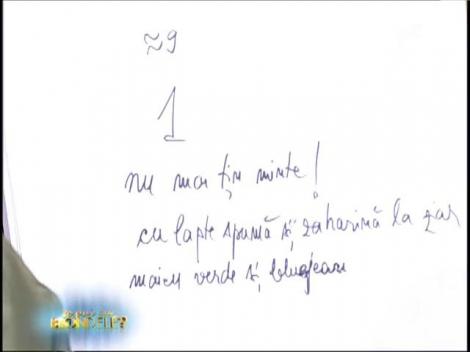 ≈9
1
nu mai țin minte!
cu lapte spumă și zaharină la țar
maieu verde și blugean